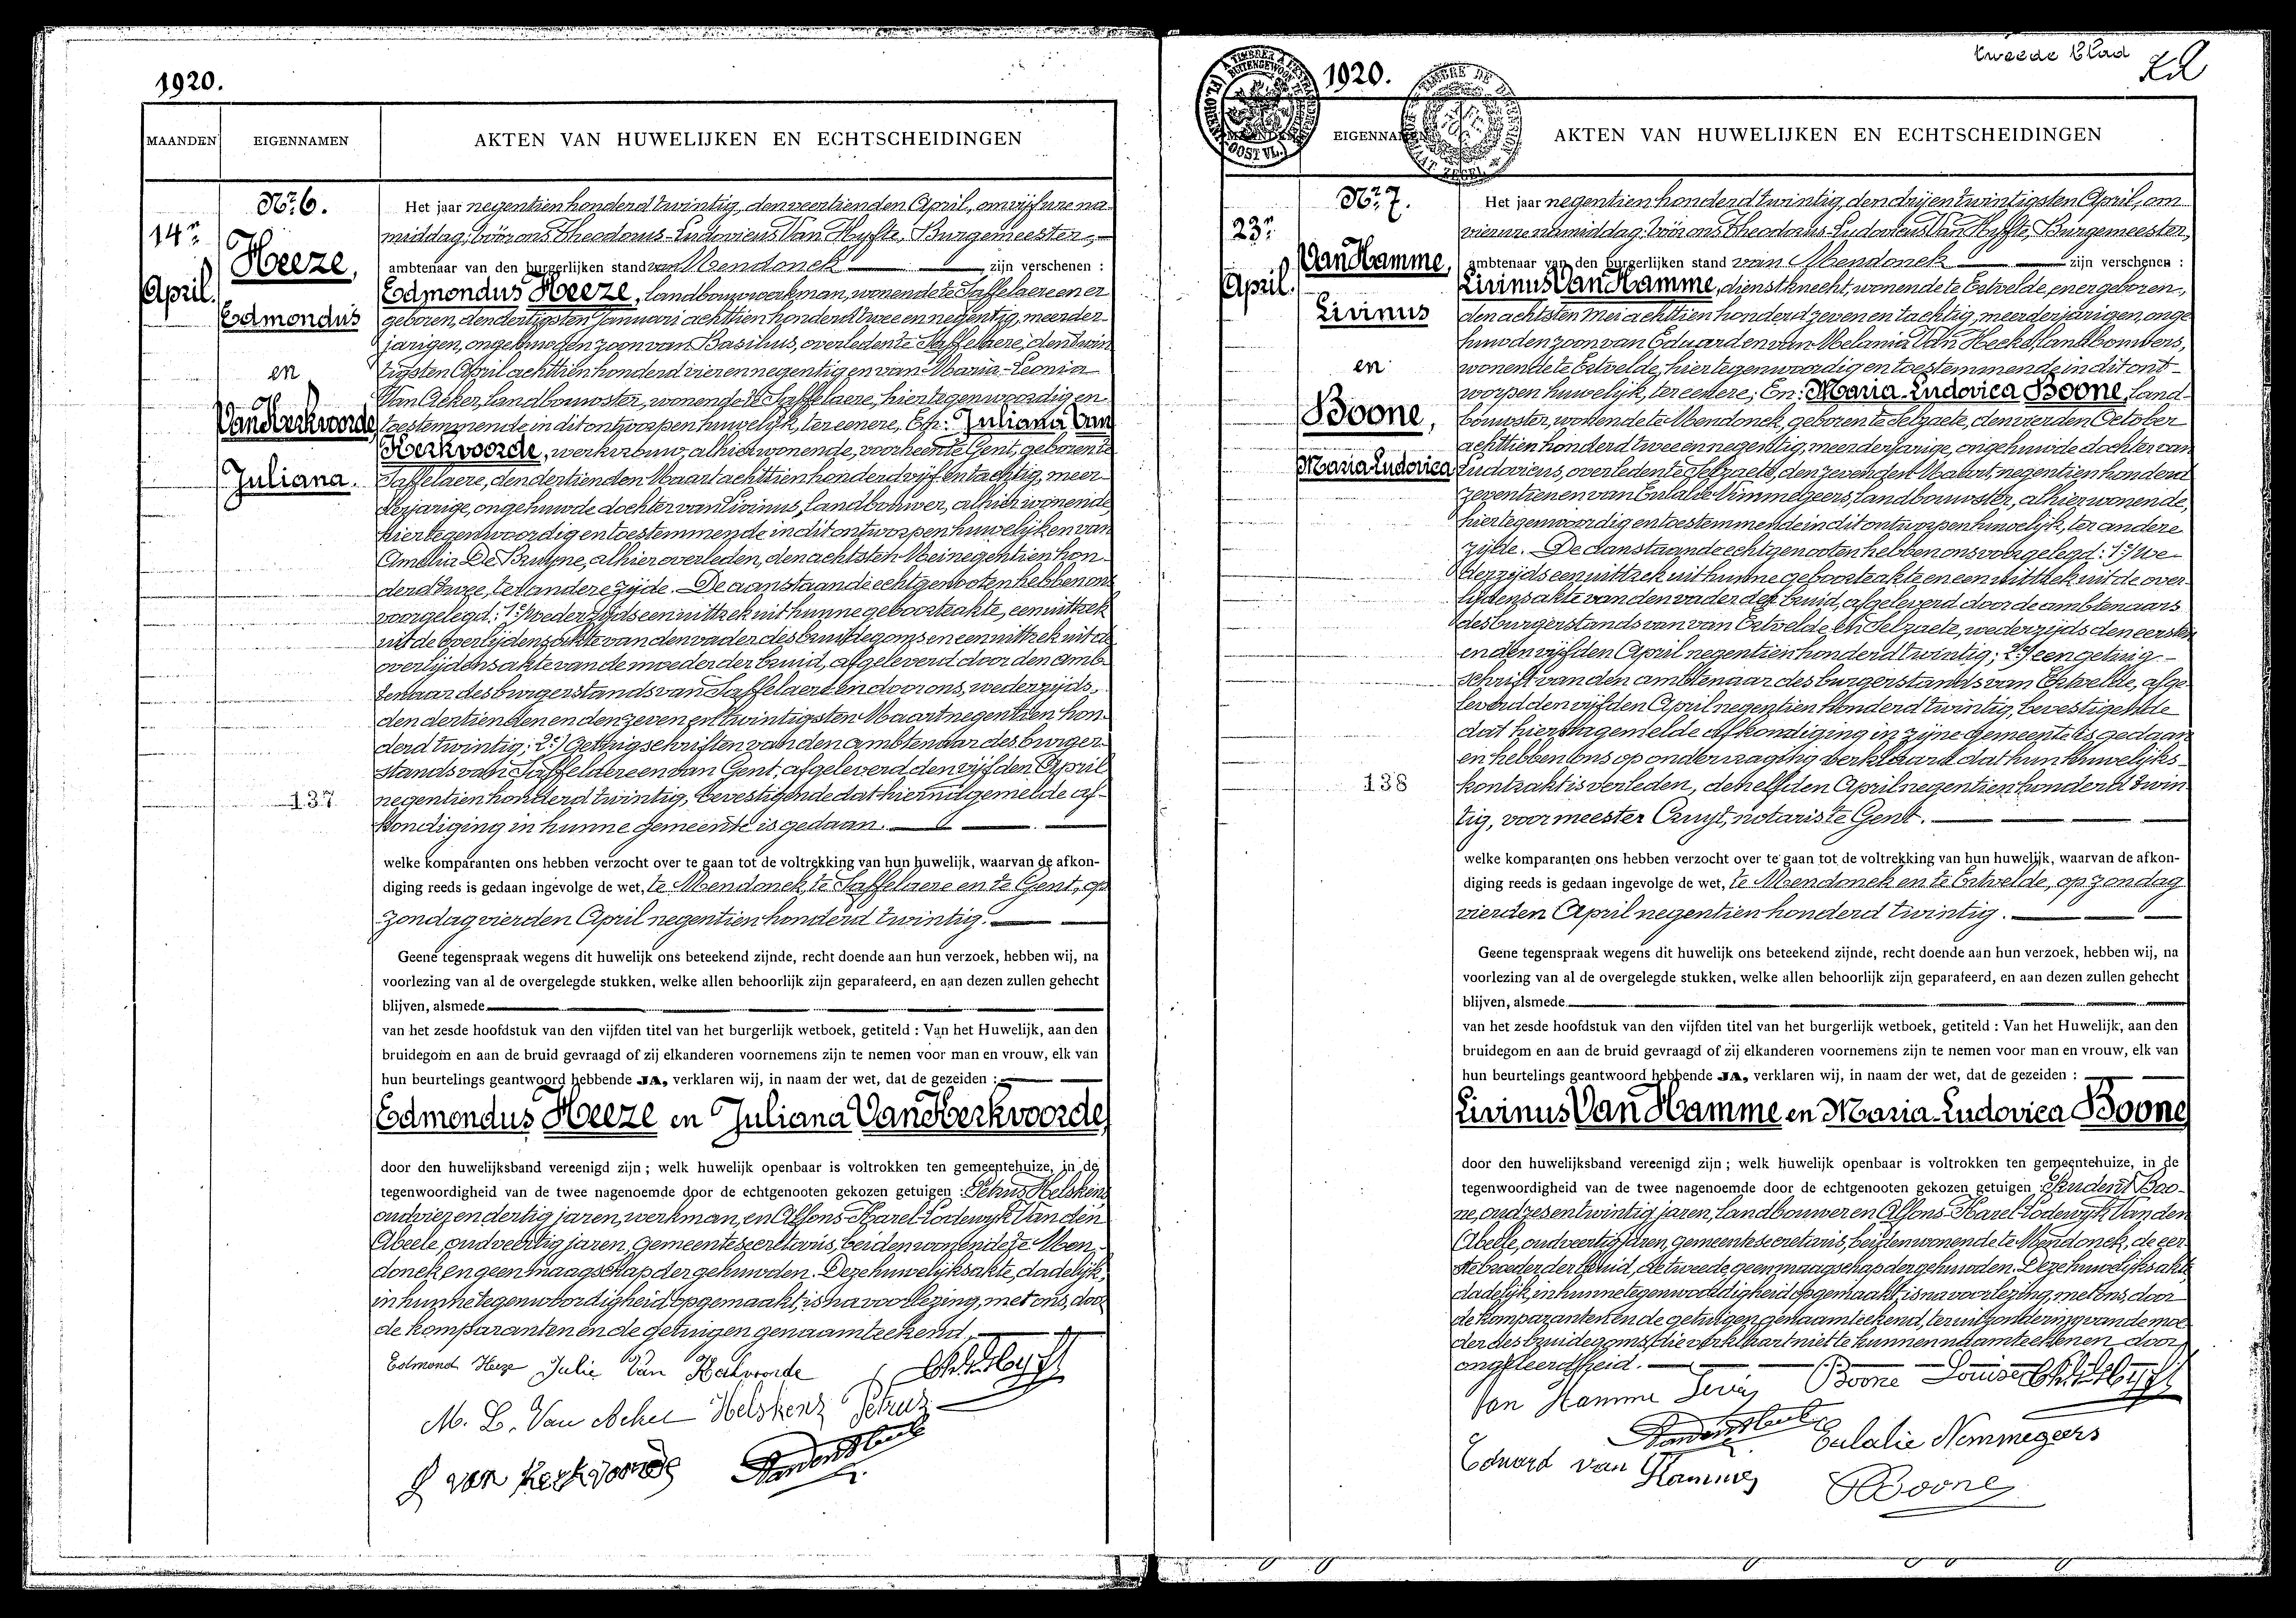 1920.
MAANDEN
EIGENNAMEN
AKTEN VAN HUWELIJKEN EN ECHTSCHEIDINGEN
14n
April.
Nr. 6.
Heeze,
Edmondus
en
Van Kerkvoorde,
Juliana.
137
Het jaar negentien honderd twintig, den veertienden April, om vijf ure na-
middag; vóór ons Theodorus-Ludovicus Van Hyfte, Burgemeester,
ambtenaar van den burgerlijken stand van Mendonck zijn verschenen :
Edmondus Heeze, landbouwwerkman, wonende te Saffelaere en er
geboren, den dertigsten Januari achttien honderd twee en negentig, meerder-
jarigen, ongehuwden zoon van Basilius, overleden te Saffelaere, den twin
tigsten April achttien honderd vier en negentig en van Maria-Leonia
Van Acker, landbouwster, wonende te Saffelaere, hier tegenwoordig en
toestemmende in dit ontworpen huwelijk, ter eenere, En: Juliana Van
Kerkvoorde, werkvrouw, alhier wonende, voorheen te Gent, geboren te
Saffelaere, den dertienden Maart achttien honderd vijf en tachtig, meer-
derjarige, ongehuwde dochter van Livinus, landbouwer, alhier wonende,
hier tegenwoordig en toestemmende in dit ontworpen huwelijk en van
Amelia De Bruyne, alhier overleden, den achtsten Mei negentien hon-
derd twee, ter andere zijde. De aanstaande echtgenooten hebben ons
voorgelegd: 1e/ wederzijds een uittrek uit hunne geboorteakte, een uittrek
uit de overlijdensakte van den vader des bruidegoms en een uittrek uit de
overlijdensakte van de moeder der bruid, afgeleverd door den amb-
tenaar des burgerstands van Saffelaere en door ons, wederzijds,
den dertienden en den zeven en twintigsten Maart negentien hon-
derd twintig; 2e/ Getuigschriften van den ambtenaar des burger-
stands van Saffelaere en van Gent, afgeleverd den vijfden April
negentien honderd twintig, bevestigende dat hierna gemelde af-
kondiging in hunne gemeente is gedaan.
welke komparanten ons hebben verzocht over te gaan tot de voltrekking van hun huwelijk, waarvan de afkon-
diging reeds is gedaan ingevolge de wet, te Mendonck, te Saffelaere en te Gent, op
zondag vierden April negentien honderd twintig.
Geene tegenspraak wegens dit huwelijk ons beteekend zijnde, recht doende aan hun verzoek, hebben wij, na
voorlezing van al de overgelegde stukken, welke allen behoorlijk zijn geparafeerd, en aan dezen zullen gehecht
blijven, alsmede
van het zesde hoofdstuk van den vijfden titel van het burgerlijk wetboek, getiteld : Van het Huwelijk, aan den
bruidegom en aan de bruid gevraagd of zij elkanderen voornemens zijn te nemen voor man en vrouw, elk van
hun beurtelings geantwoord hebbende JA, verklaren wij, in naam der wet, dat de gezeiden :
Edmondus Heeze en Juliana Van Kerkvoorde,
door den huwelijksband vereenigd zijn ; welk huwelijk openbaar is voltrokken ten gemeentehuize, in de
tegenwoordigheid van de twee nagenoemde door de echtgenooten gekozen getuigen : Petrus Helskens,
oud vier en dertig jaren, werkman, en Alfons-Karel-Lodewyk Van den
Abeele, oud veertig jaren, gemeentesecretaris, beiden wonende te Men-
donck en geen maagschap der gehuwden. Deze huwelijksakte, dadelijk,
in hunne tegenwoordigheid opgemaakt, is na voorlezing, met ons, door
de komparanten en de getuigen genaamteekend.
Edmond Heeze Julie Van Kerkvoorde
M. L. Van Acker Helskens Petrus
L van Kerkvoorde
tweede blad
1920.
MAANDEN
EIGENNAMEN
AKTEN VAN HUWELIJKEN EN ECHTSCHEIDINGEN
23n
April.
Nr. 7.
Van Hamme,
Livinus
en
Boone,
Maria-Ludovica
138
Het jaar negentien honderd twintig, den drij en twintigsten April, om
vier ure namiddag; vóór ons Theodorus-Ludovicus Van Hyfte, Burgemeester,
ambtenaar van den burgerlijken stand van Mendonck zijn verschenen :
Livinus Van Hamme, dienstknecht, wonende te Ertvelde, en er geboren,
den achtsten Mei achttien honderd zeven en tachtig, meerderjarigen, onge
huwden zoon van Eduard en van Melania Van Hecke, landbouwers,
wonende te Ertvelde, hier tegenwoordig en toestemmende in dit ont-
worpen huwelijk, ter eenere; En: Maria-Ludovica Boone, land-
bouwster, wonende te Mendonck, geboren te Selzaete, den vierden October
achttien honderd twee en negentig, meerderjarige, ongehuwde dochter van
Ludovicus, overleden te Selzaete, den zevenden Maart negentien honderd
zeventien en van Eulalie Nimmegeers, landbouwster, alhier wonende,
hier tegenwoordig en toestemmende in dit ontworpen huwelijk, ter andere
zijde. De aanstaande echtgenooten hebben ons voorgelegd: 1e/ we-
derzijds een uittrek uit hunne geboorteakte en een uittrek uit de over-
lijdensakte van den vader der bruid, afgeleverd door de ambtenaars
des burgerstands van van Ertvelde en Selzaete, wederzijds den eersten
en den vijfden April negentien honderd twintig; 2e/ een getuig-
schrift van den ambtenaar des burgerstands van Ertvelde, afge-
leverd den vijfden April negentien honderd twintig, bevestigende
dat hierna gemelde afkondiging in zijne gemeente is gedaan
en hebben ons op ondervraging verklaard dat hun huwelijks-
kontrakt is verleden, den elfden April negentien honderd twin
tig, voor meester Cruyt, notaris te Gent.
welke komparanten ons hebben verzocht over te gaan tot de voltrekking van hun huwelijk, waarvan de afkon-
diging reeds is gedaan ingevolge de wet, te Mendonck en te Ertvelde, op zondag
vierden April negentien honderd twintig.
Geene tegenspraak wegens dit huwelijk ons beteekend zijnde, recht doende aan hun verzoek, hebben wij, na
voorlezing van al de overgelegde stukken, welke allen behoorlijk zijn geparafeerd, en aan dezen zullen gehecht
blijven, alsmede
van het zesde hoofdstuk van den vijfden titel van het burgerlijk wetboek, getiteld : Van het Huwelijk, aan den
bruidegom en aan de bruid gevraagd of zij elkanderen voornemens zijn te nemen voor man en vrouw, elk van
hun beurtelings geantwoord hebbende JA, verklaren wij, in naam der wet, dat de gezeiden :
Livinus Van Hamme en Maria-Ludovica Boone
door den huwelijksband vereenigd zijn ; welk huwelijk openbaar is voltrokken ten gemeentehuize, in de
tegenwoordigheid van de twee nagenoemde door de echtgenooten gekozen getuigen : Prudent Boo-
ne, oud zes en twintig jaren, landbouwer en Alfons-Karel-Lodewyk Van den
Abeele, oud veertig jaren, gemeentesecretaris, beiden wonende te Mendonck, de eer-
ste broeder der bruid, de tweede geen maagschap der gehuwden. Deze huwelijksakte,
dadelijk, in hunne tegenwoordigheid opgemaakt, is na voorlezing, met ons, door
de komparanten en de getuigen genaamteekend, ter uitzondering van de moe-
der des bruidegoms, die verklaart niet te kunnen naamteekenen door
ongeleerdheid.
Van Hamme Boone Louise
Eduard van Hamme Eulalie Nemmegeers
Boone